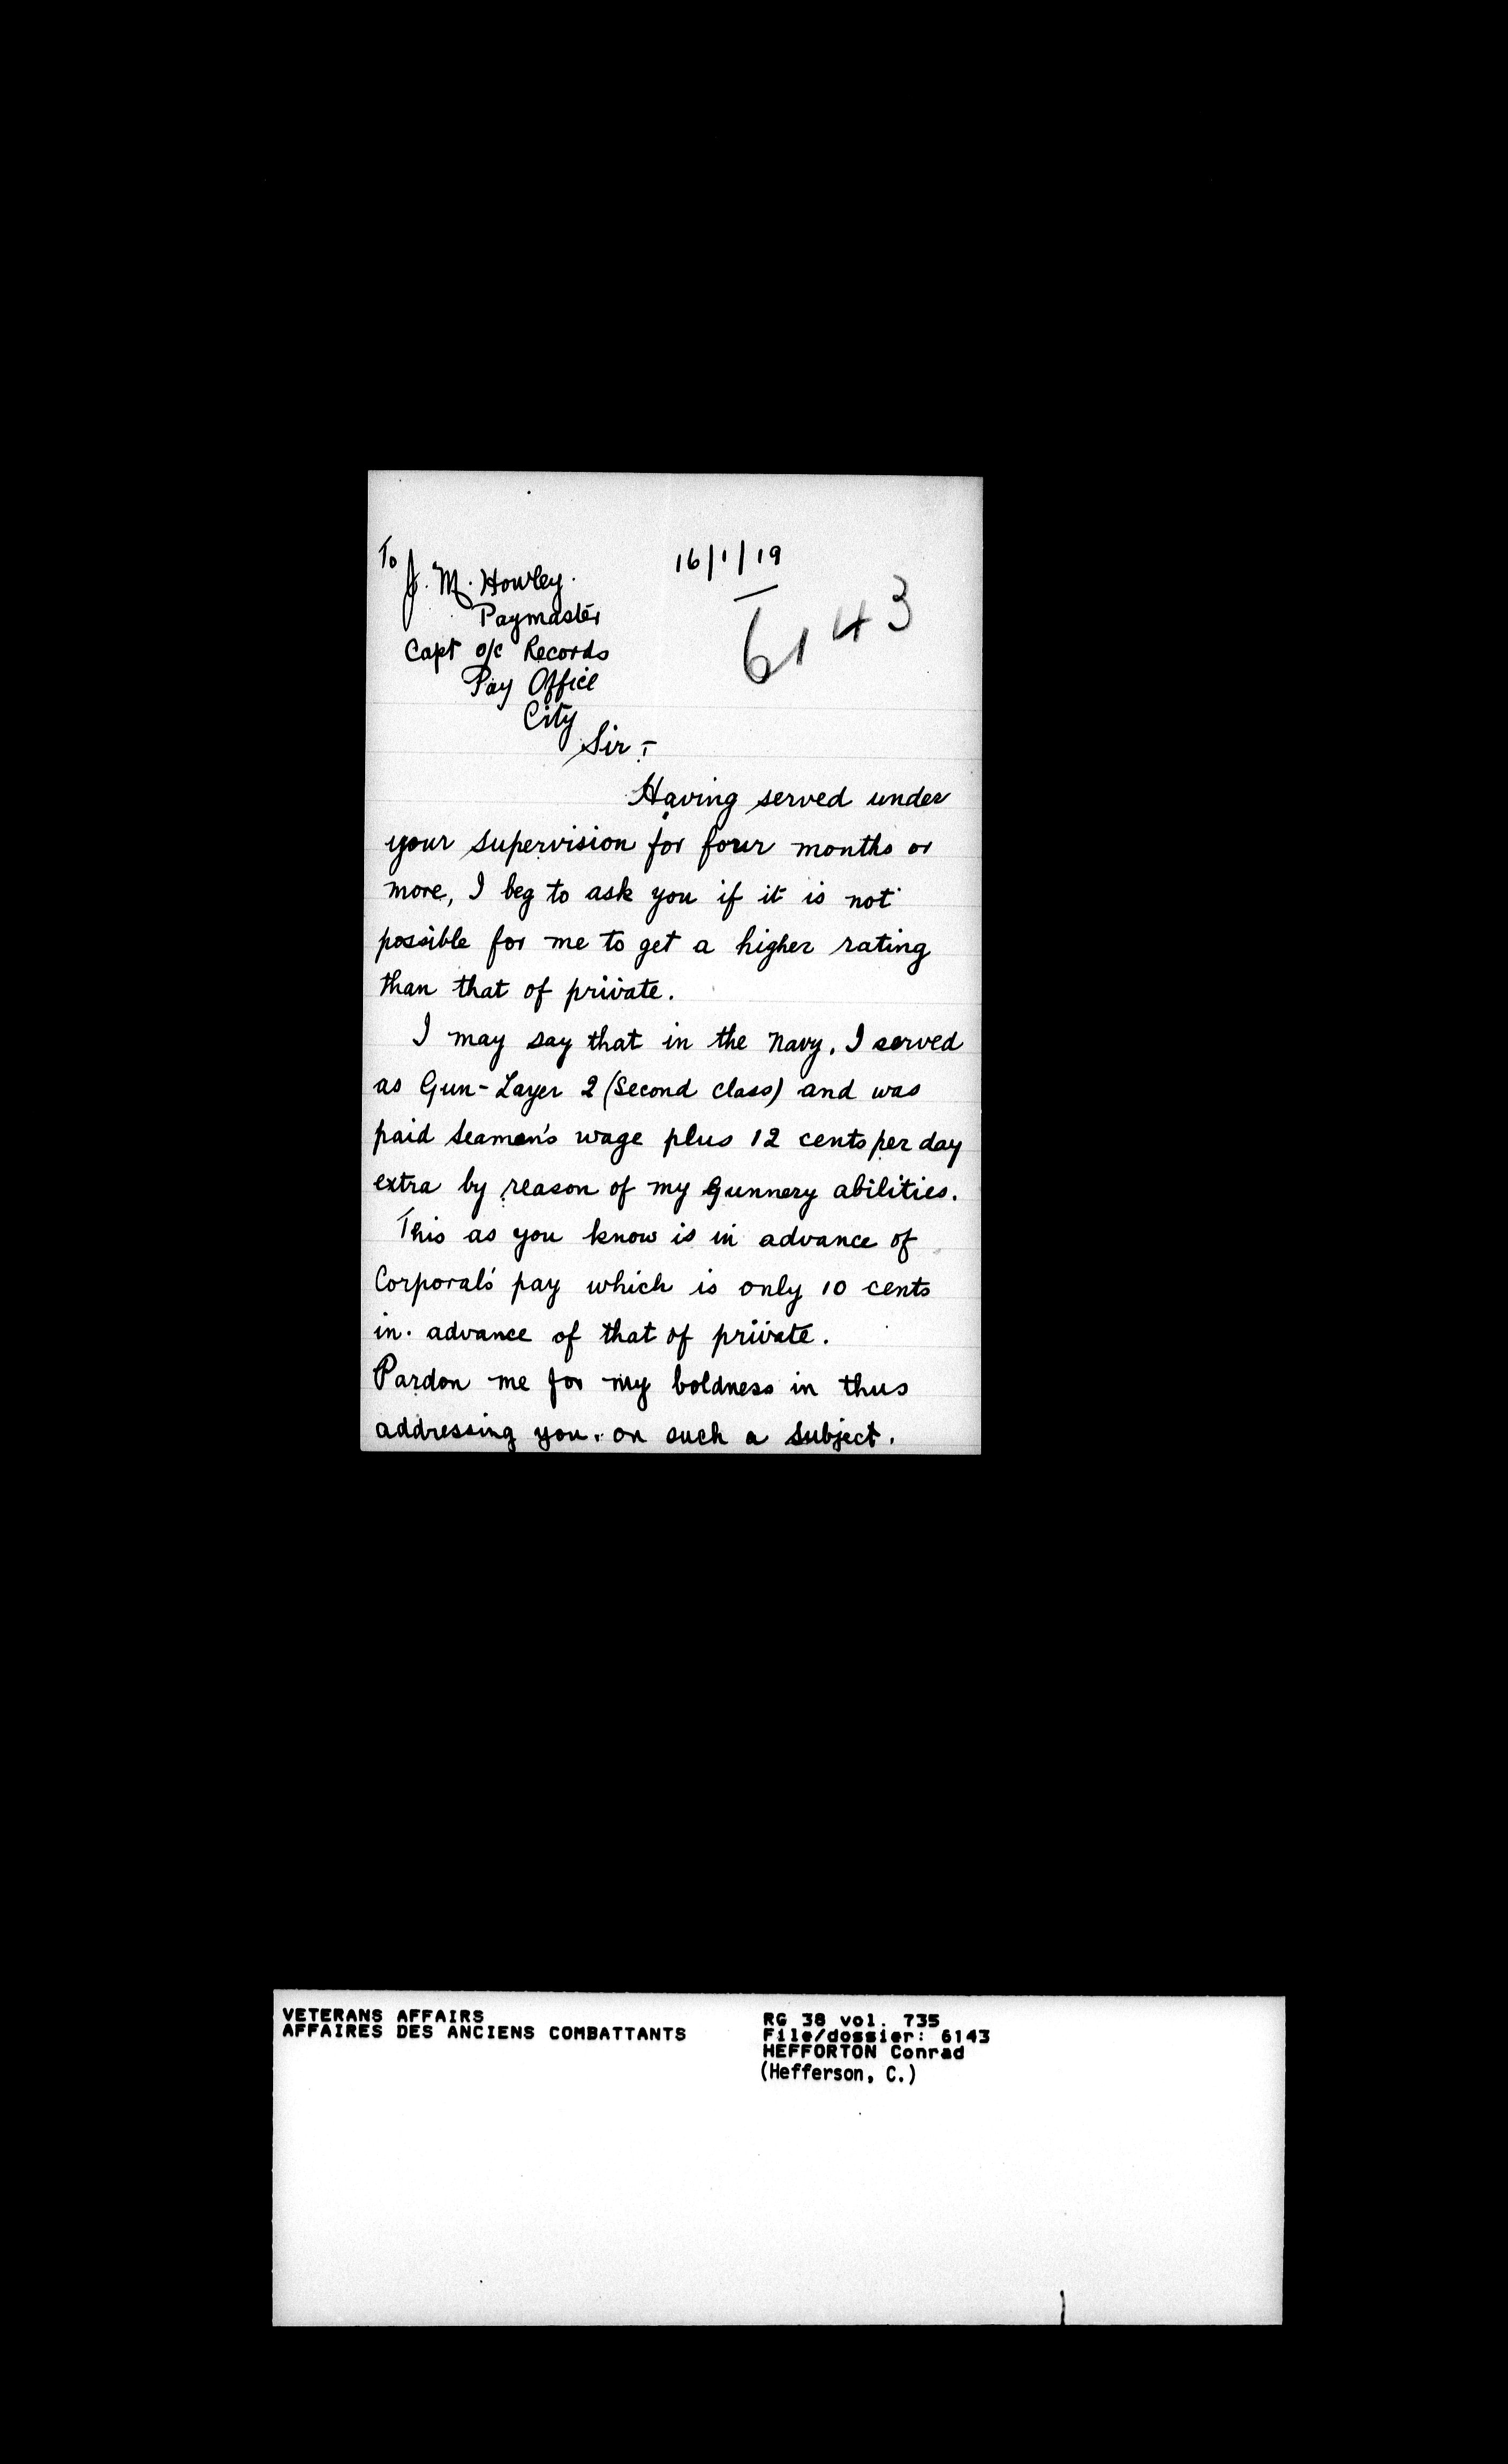 To
16/1/19
J. M. Howley.
Paymaster
6143
Capt o/c Records
Pay Office
City
Sir :-
Having served under
your supervision for four months or
more, I beg to ask you if it is not
possible for me to get a higher rating
than that of private.
I may say that in the Navy, I served
as Gun-Layer 2 (Second class) and was
paid Seamen's wage plus 12 cents per day
extra by reason of my Gunnery abilities.
This as you know is in advance of
Corporal's pay which is only 10 cents
in advance of that of private.
Pardon me for my boldness in thus
addressing you, on such a subject.
VETERANS AFFAIRS
AFFAIRES DES ANCIENS COMBATTANTS
RG 38 vol. 735
File/dossier: 6143
HEFFORTON Conrad
(Hefferson, C.)